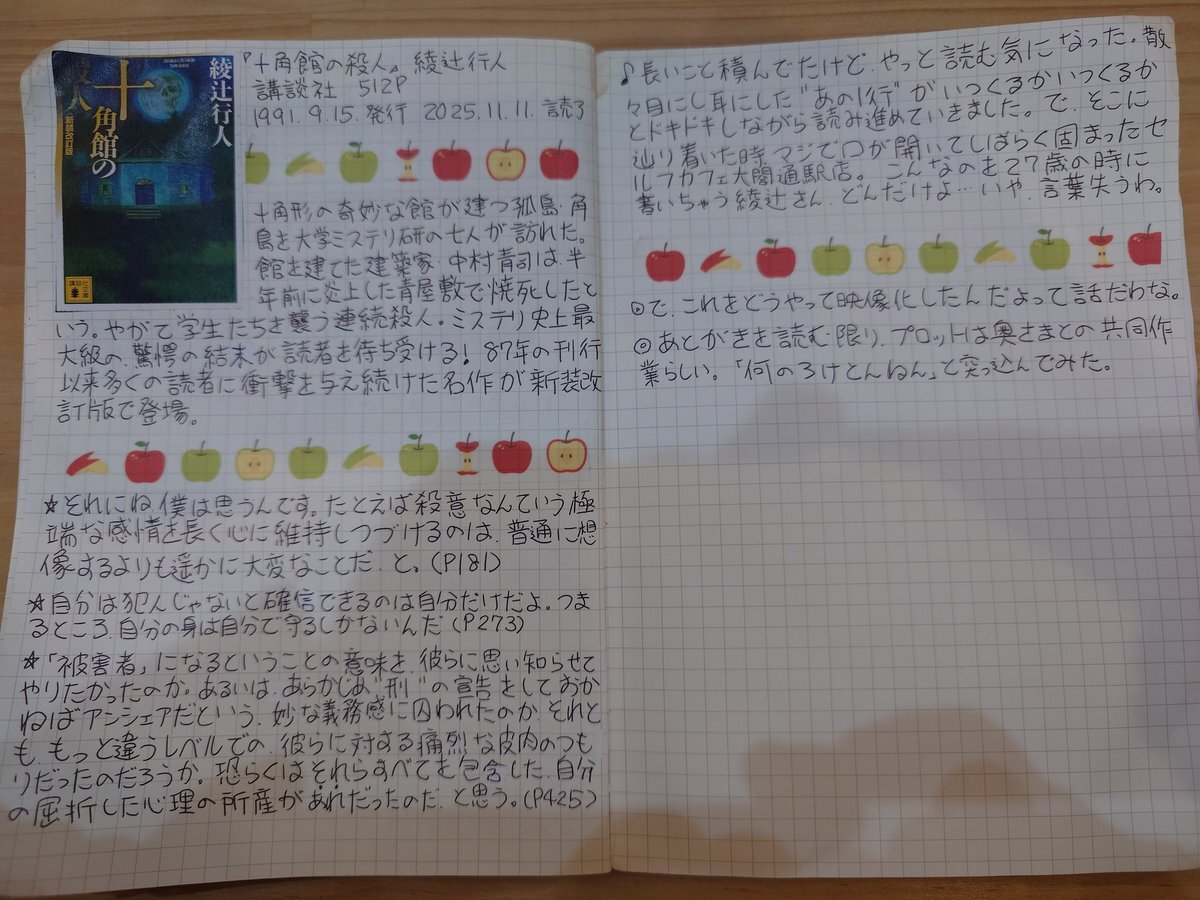 綾辻行人
十角館の
殺人
新装改訂版
講談社文庫
『十角館の殺人』 綾辻行人
講談社 512P
1991.9.15.発行 2025.11.11.読了
十角形の奇妙な館が建つ孤島・角
島を大学ミステリ研の七人が訪れた。
館を建てた建築家・中村青司は、半
年前に炎上した青屋敷で焼死したと
いう。やがて学生たちを襲う連続殺人。ミステリ史上最
大級の、驚愕の結末が読者を待ち受ける!87年の刊行
以来多くの読者に衝撃を与え続けた名作が新装改
訂版で登場。
☆それにね、僕は思うんです。たとえば殺意なんていう極
端な感情を長く心に維持しつづけるのは、普通に想
像するよりも遥かに大変なことだ、と。(P181)
☆自分は犯人じゃないと確信できるのは自分だけだよ。つま
るところ、自分の身は自分で守るしかないんだ(P273)
☆「被害者」になるということの意味を、彼らに思い知らせて
やりたかったのか。あるいは、あらかじめ"刑"の宣告をしておか
ねばアンシェアだという、妙な義務感に囚われたのか、それと
も、もっと違うレベルでの、彼らに対する痛烈な皮肉のつも
りだったのだろうか。恐らくはそれらすべてを包含した、自分
の屈折した心理の所産があれだったのだ、と思う。(P425)
♪長いこと積んでたけど、やっと読む気になった。散
々目にし耳にした"あの1行"がいつくるかいつくるか
とドキドキしながら読み進めていきました。で、そこに
辿り着いた時、マジで口が開いてしばらく固まったセ
ルフカフェ大閤通駅店。こんなのを27歳の時に
書いちゃう綾辻さん、どんだけよ…いや、言葉失うわ。
◎で、これをどうやって映像化したんだよって話だわな。
◎あとがきを読む限り、プロットは奥さまとの共同作
業らしい。「何のろけとんねん」と突っ込んでみた。